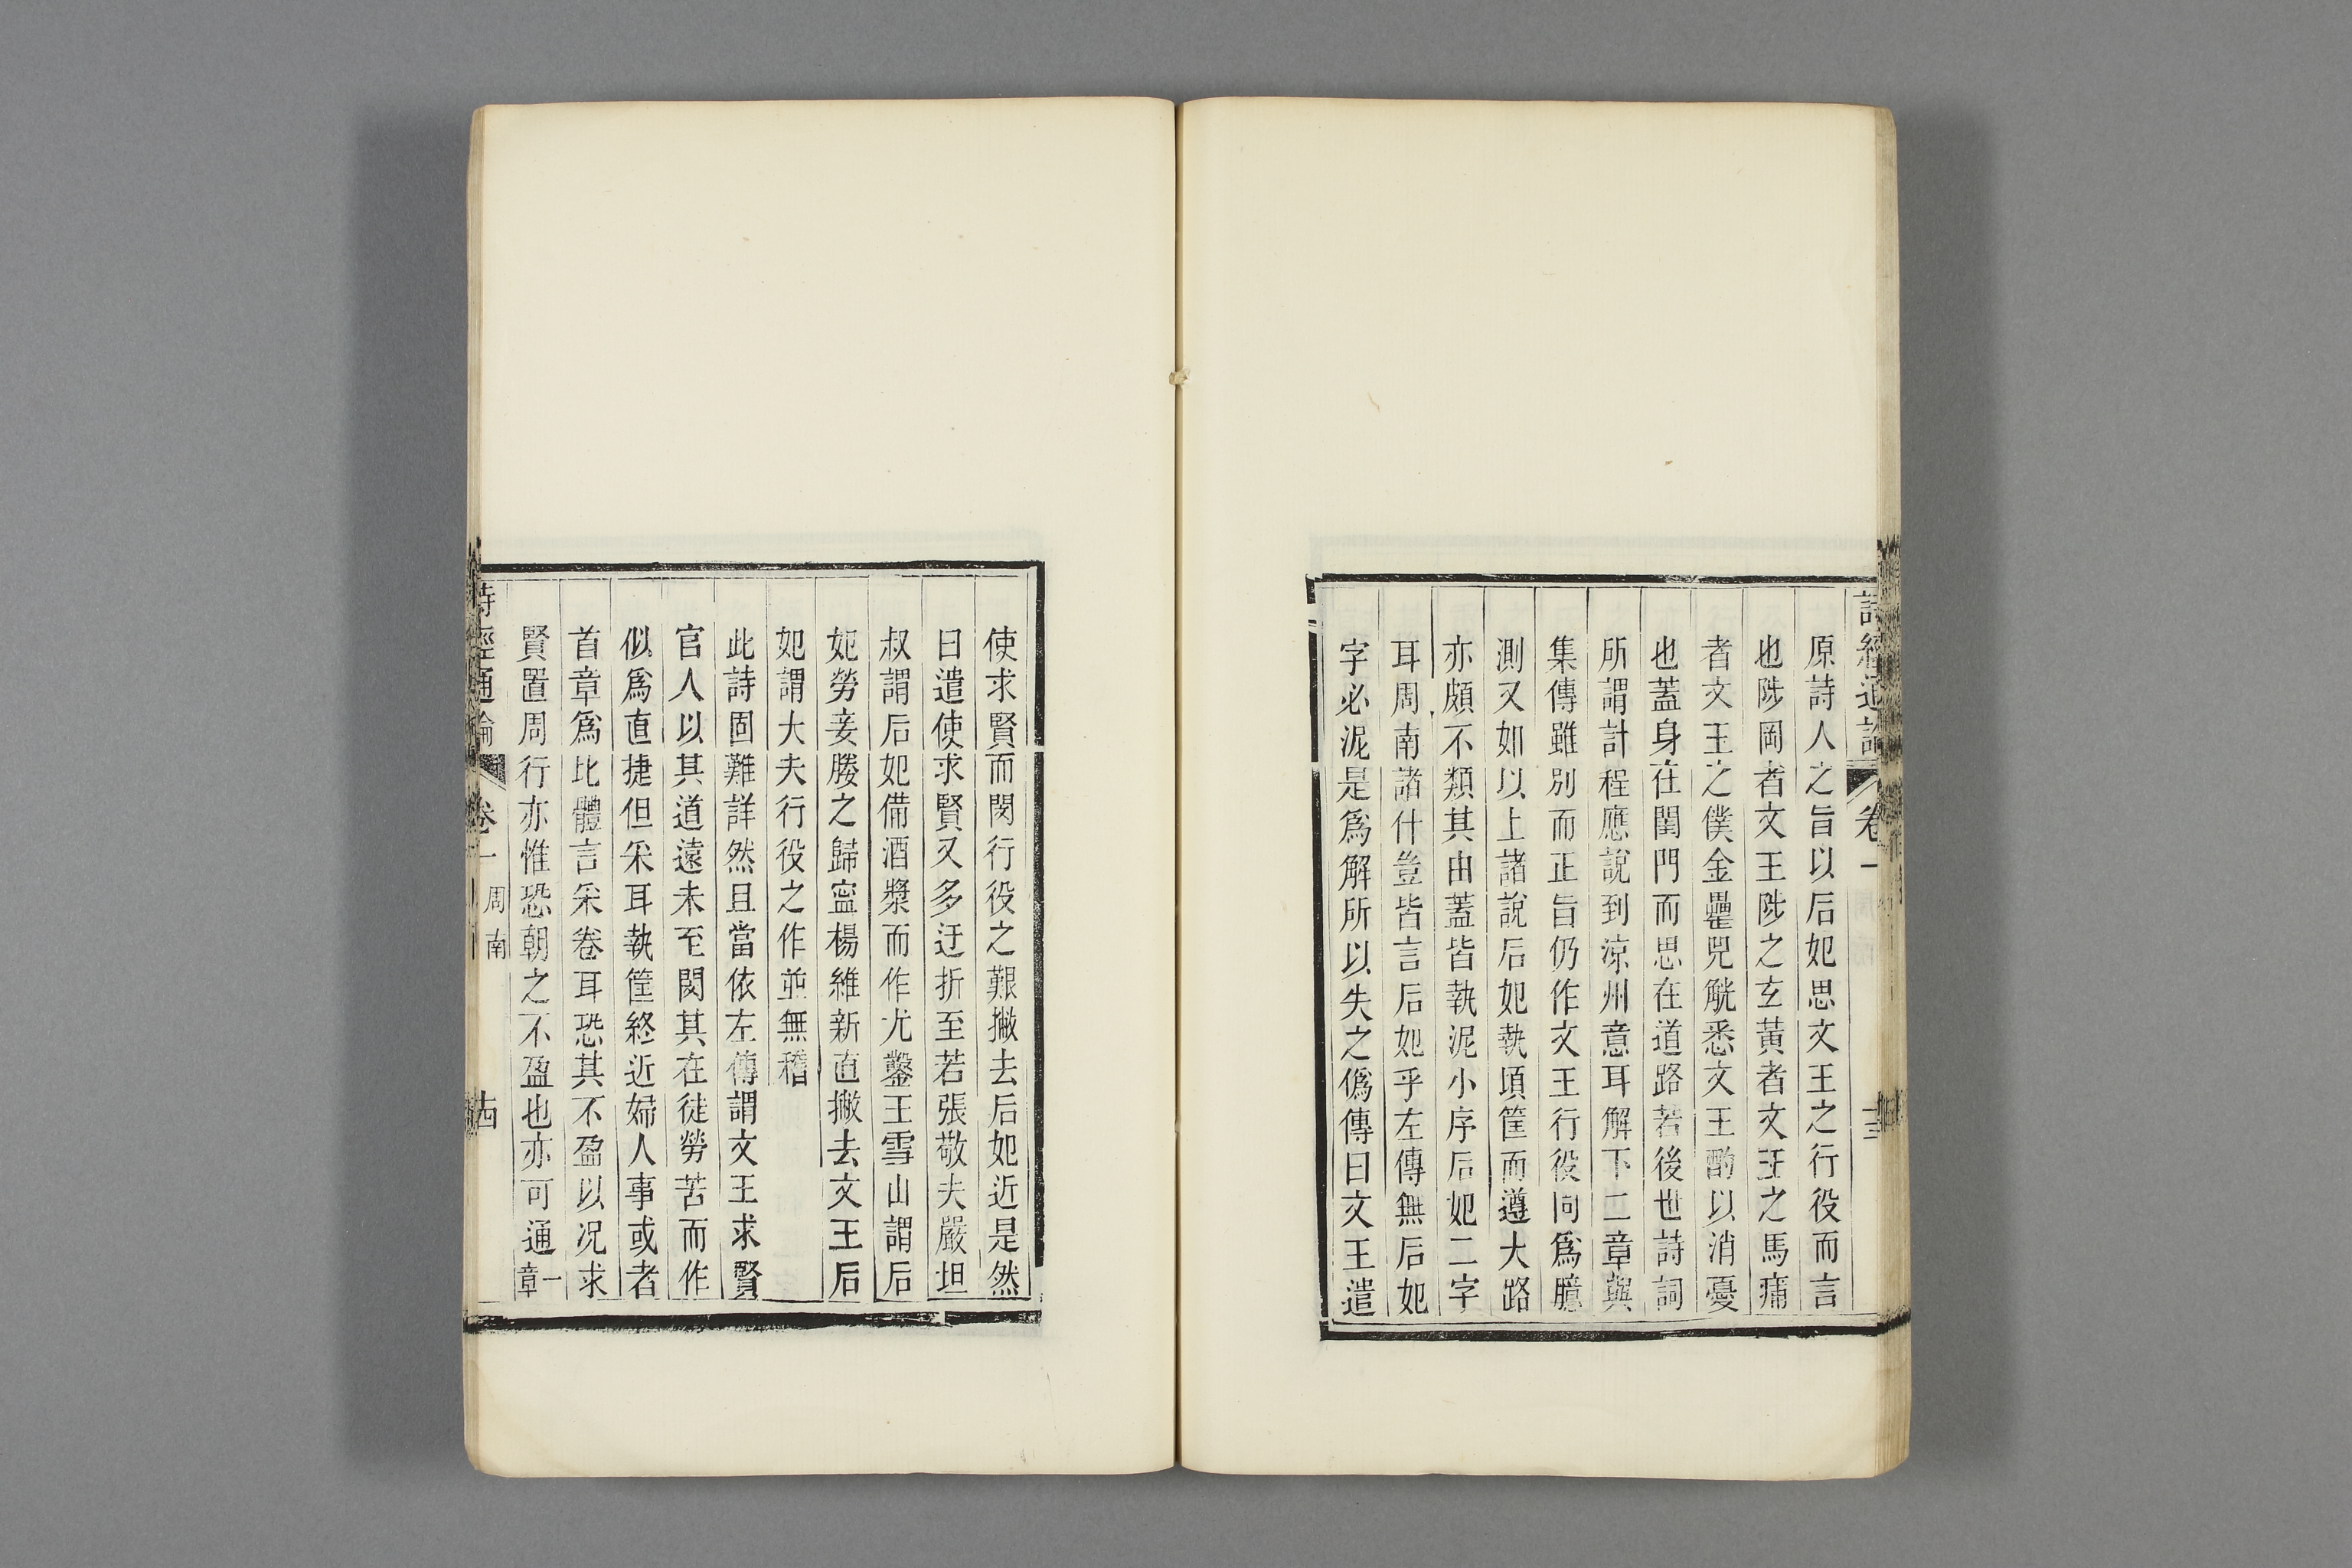 詩經通論
卷一
原詩人之旨以后妃思文王之行役而言
也陟岡者文王陟之玄黃者文王之馬痡
者文王之僕金罍兕觥悉文王酌以消憂
也蓋身在閨門而思在道路若後世詩詞
所謂計程應說到涼州意耳解下二章與
集傳雖別而正旨仍作文王行役同為臆
測又如以上諸說后妃執頃筐而遵大路
亦頗不類其由蓋皆執泥小序后妃二字
耳周南諸什豈皆言后妃乎左傳無后妃
字必泥是為解所以失之偽傳曰文王遣
使求賢而閔行役之艱撇去后妃近是然
曰遣使求賢又多迂折至若張敬夫嚴坦
叔謂后妃備酒漿而作尤鑿王雪山謂后
妃勞妾媵之歸寍楊維新直撇去文王后
妃謂大夫行役之作並無稽
此詩固難詳然且當依左傳謂文王求賢
官人以其道遠未至閔其在徒勞苦而作
似為直捷但采耳執筐終近婦人事或者
首章為比體言采卷耳恐其不盈以况求
賢置周行亦惟恐朝之不盈也亦可通一章
詩經通論
卷一
周南
古